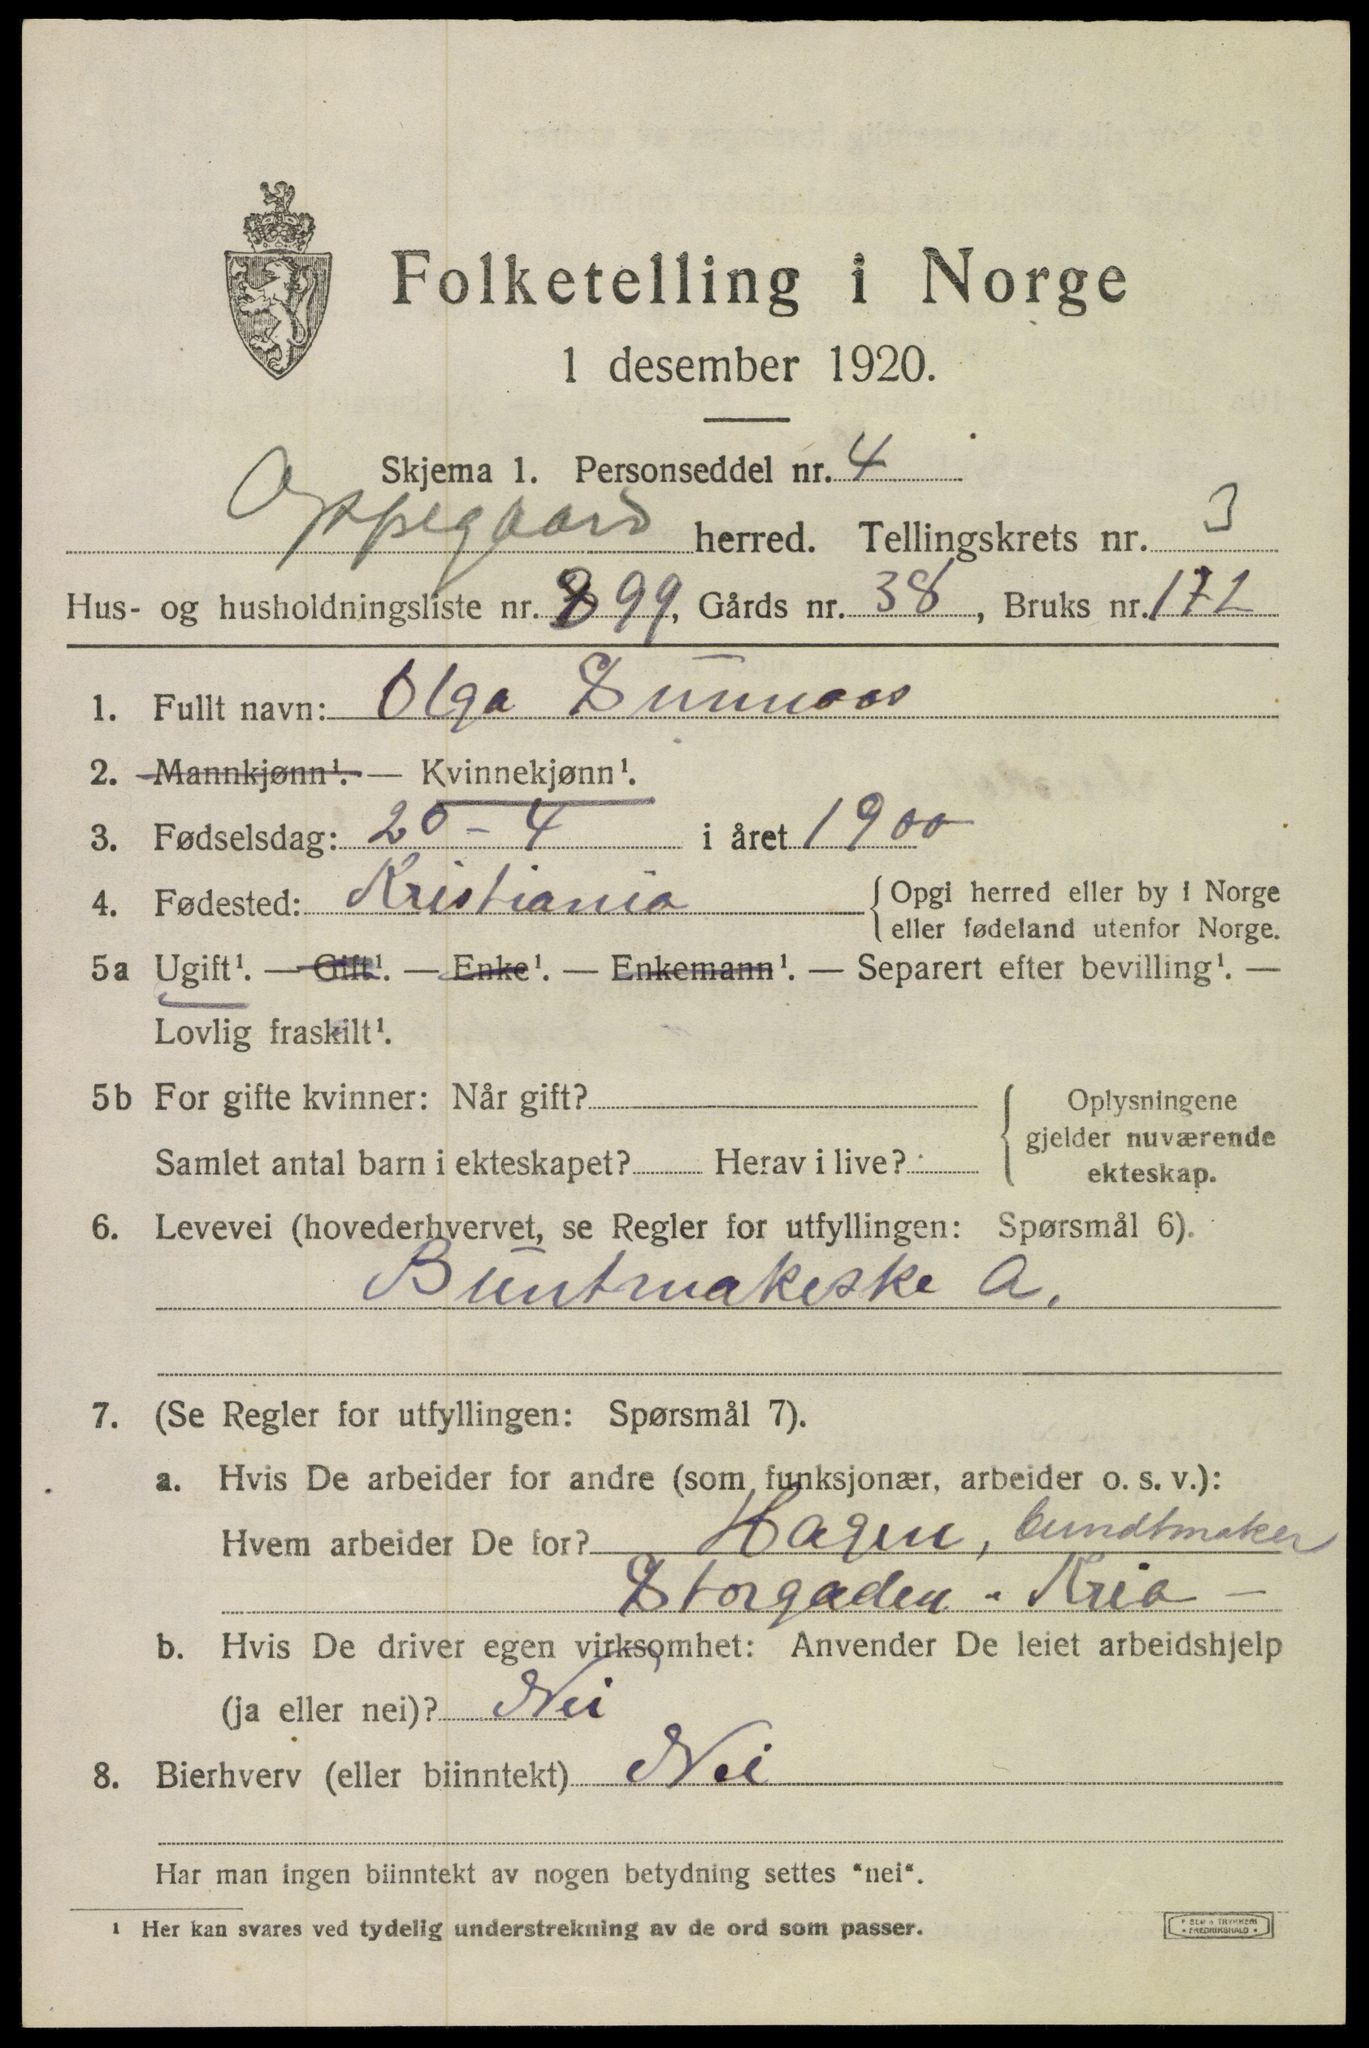 Folketelling i Norge
1 desember 1920.
Skjema 1. Personseddel nr. 4
Oppegaard herred. Tellingskrets nr. 3
Hus- og husholdningsliste nr. 99, Gårds nr. 38, Bruks nr. 172
1. Fullt navn: Olga
2. Mannkjønn¹. — Kvinnekjønn¹.
3. Fødselsdag: 20 - 4 i året 1900
4. Fødested: Kristiania { Opgi herred eller by i Norge
eller fødeland utenfor Norge.
5a Ugift¹. — Gift¹. — Enke¹. — Enkemann¹. — Separert efter bevilling¹. —
Lovlig fraskilt¹.
5b For gifte kvinner: Når gift? { Oplysningene
gjelder nuværende
Samlet antal barn i ekteskapet? Herav i live? ekteskap.
6. Levevei (hovederhvervet, se Regler for utfyllingen: Spørsmål 6).
Buntmakerske A.
7. (Se Regler for utfyllingen: Spørsmål 7).
a. Hvis De arbeider for andre (som funksjonær, arbeider o. s. v.):
Hvem arbeider De for? Hagen, bundtmaker
Storgaden - Kria -
b. Hvis De driver egen virksomhet: Anvender De leiet arbeidshjelp
(ja eller nei)? Nei
8. Bierhverv (eller biinntekt) Nei
Har man ingen biinntekt av nogen betydning settes "nei".
¹ Her kan svares ved tydelig understrekning av de ord som passer.